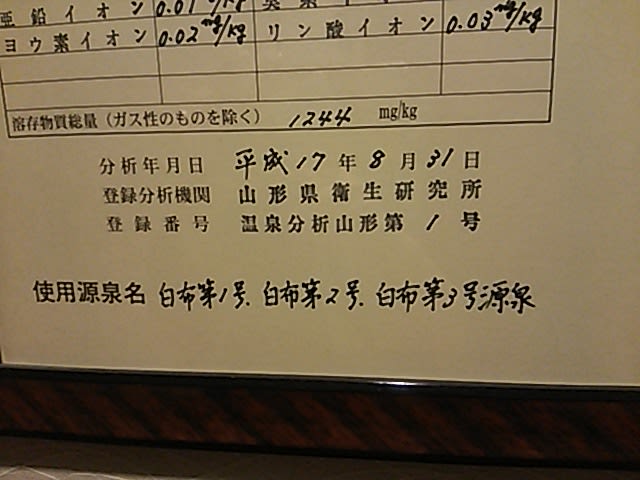 亜鉛イオン 0.01 mg/kg 臭素イ
ヨウ素イオン 0.02 mg/kg リン酸イオン 0.03 mg/kg
溶存物質総量（ガス性のものを除く） 1244 mg/kg
分析年月日 平成17年8月31日
登録分析機関 山形県衛生研究所
登録番号 温泉分析山形第1号
使用源泉名 白布第1号、白布第2号、白布第3号源泉